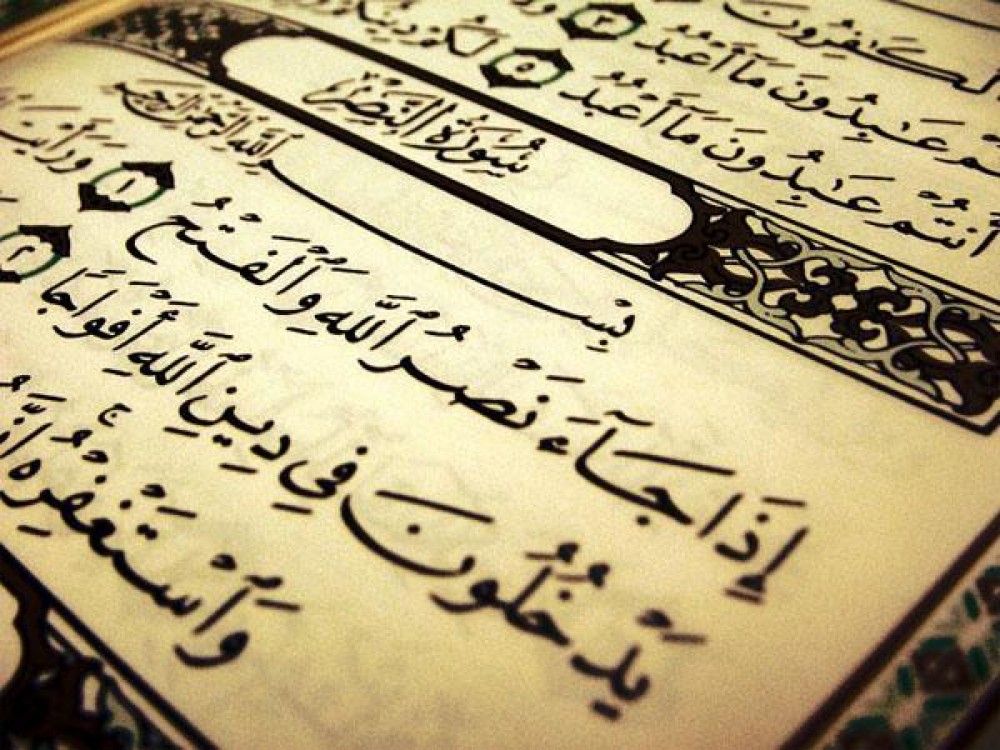 عَـٰبِدُونَ مَآ أَعْبُدُ ٣
أَنتُمْ عَـٰبِدُونَ مَآ أَعْبُدُ ٥ لَكُمْ دِينُكُمْ
سُورَةُ النَّصْرِ
بِسْمِ ٱللَّهِ ٱلرَّحْمَـٰنِ ٱلرَّحِيمِ
إِذَا جَآءَ نَصْرُ ٱللَّهِ وَٱلْفَتْحُ ١ وَرَأَيْتَ
يَدْخُلُونَ فِى دِينِ ٱللَّهِ أَفْوَاجًا ٢
وَٱسْتَغْفِرْهُ ۚ